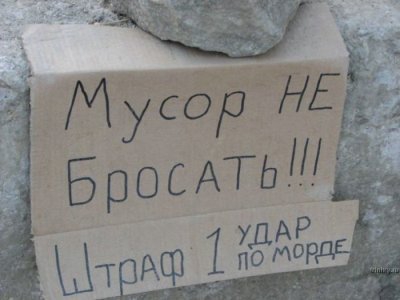 Мусор НЕ
БРОСАТЬ!!!
Штраф 1 УДАР
ПО МОРДЕ